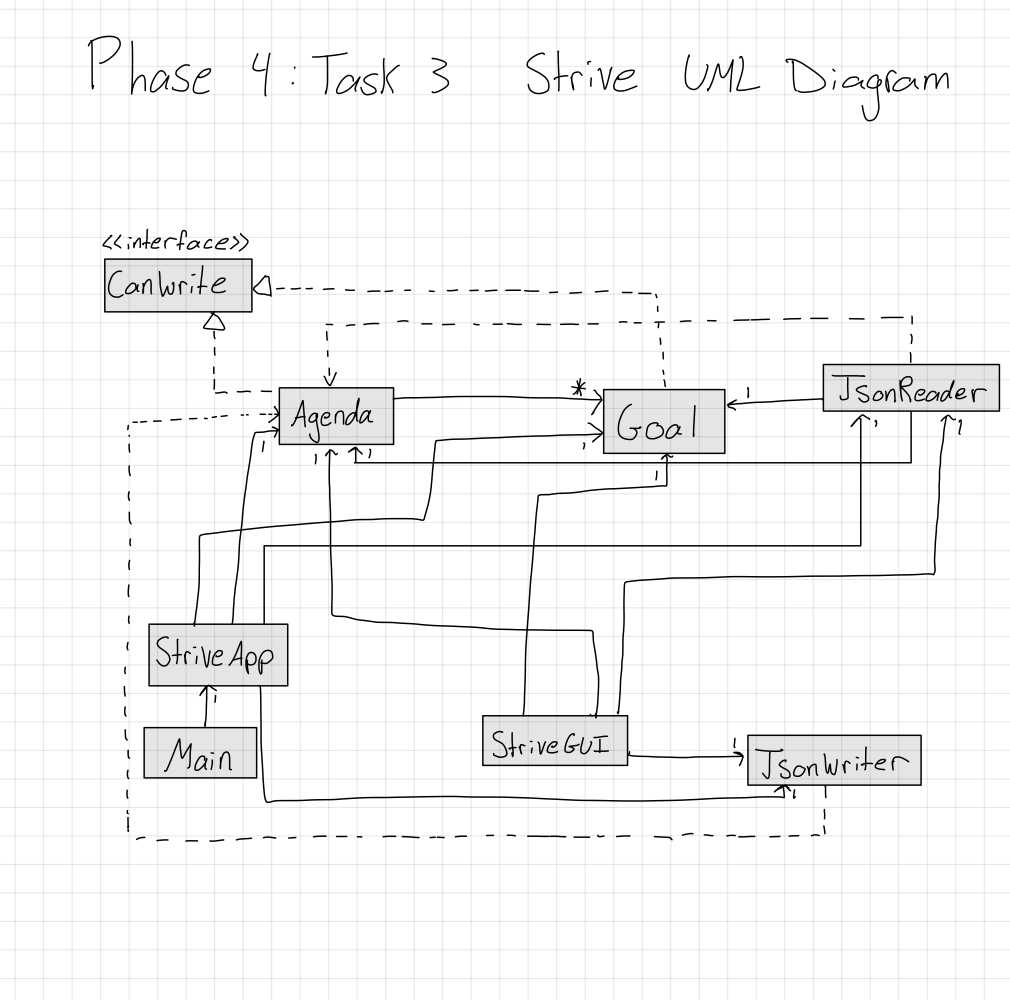 Phase 4: Task 3 Strive UML Diagram
<<interface>>
CanWrite
*
1
JsonReader
Agenda
Goal
1
1
1
1
1
1
1
1
StriveApp
1
Main
StriveGUI
1
JsonWriter
1